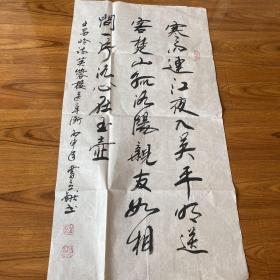 寒雨連江夜入吴平明送
客楚山孤洛陽親友如相
問一片冰心在玉壶
王昌龄诗芙蓉楼送辛渐 丙申年